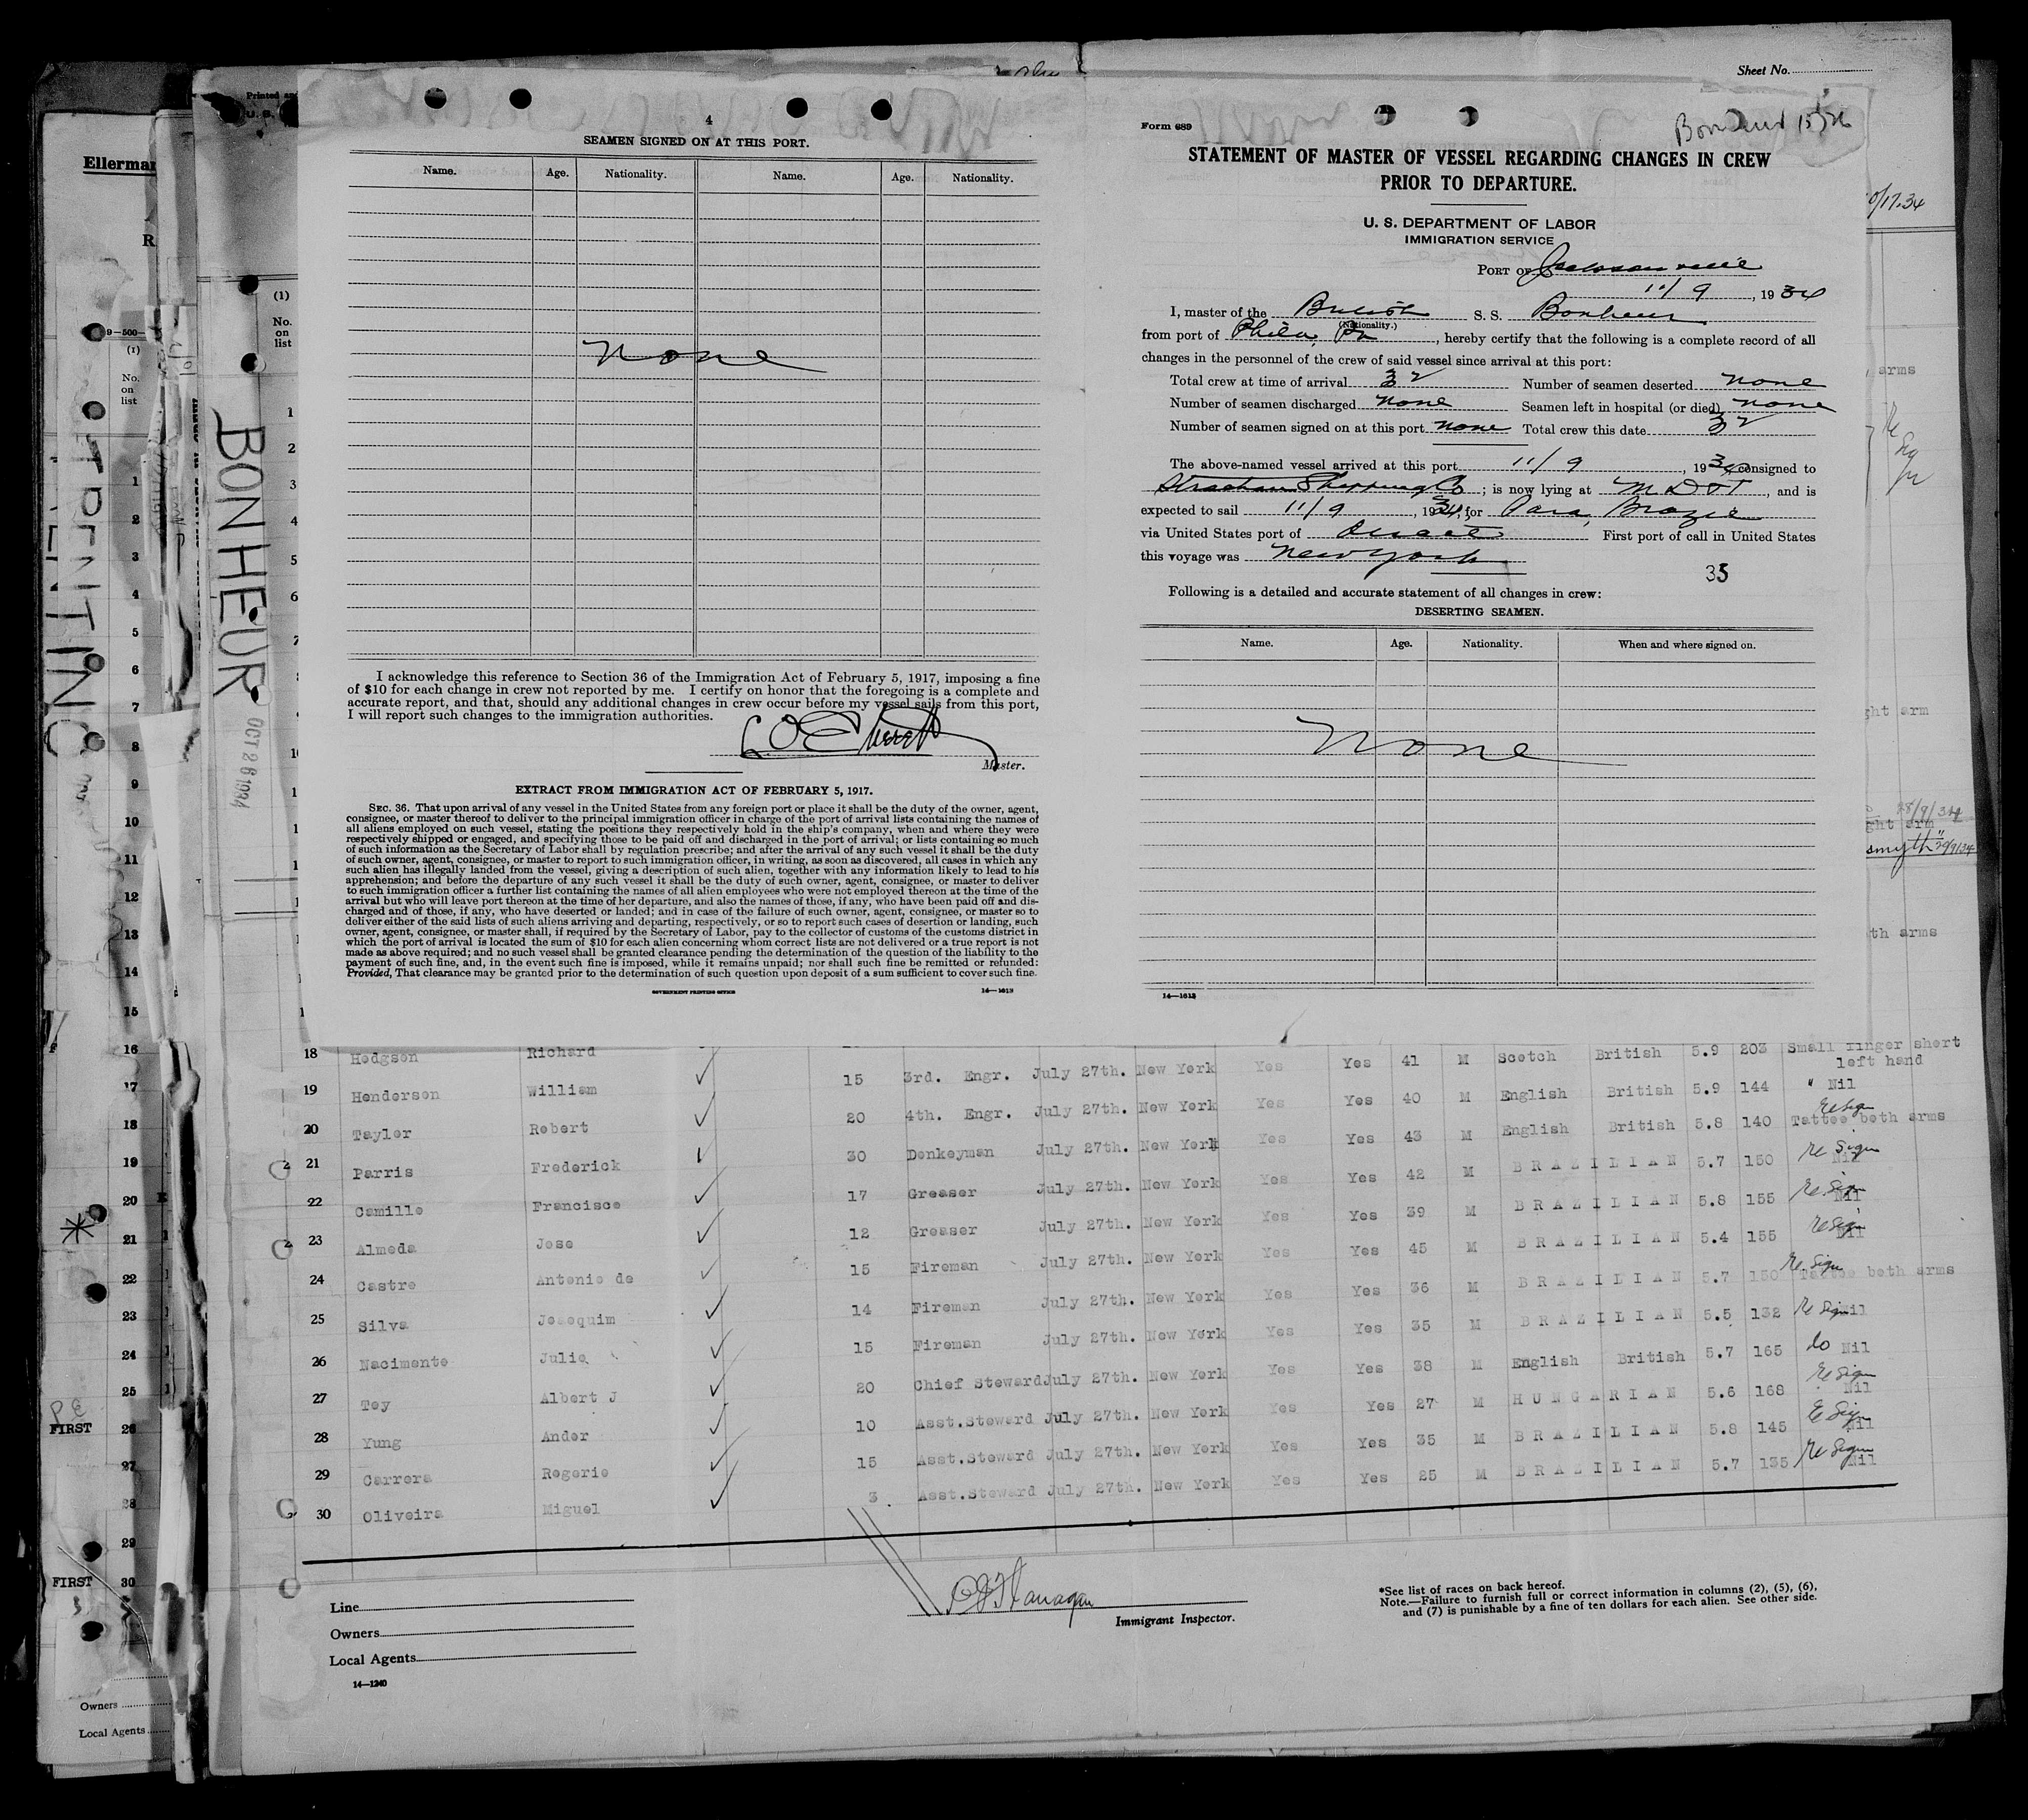 Sheet No.
4
SEAMEN SIGNED ON AT THIS PORT.
Name. Age. Nationality. Name. Age. Nationality.
none
I acknowledge this reference to Section 36 of the Immigration Act of February 5, 1917, imposing a fine
of $10 for each change in crew not reported by me. I certify on honor that the foregoing is a complete and
accurate report, and that, should any additional changes in crew occur before my vessel sails from this port,
I will report such changes to the immigration authorities.
Master.
EXTRACT FROM IMMIGRATION ACT OF FEBRUARY 5, 1917.
SEC. 36. That upon arrival of any vessel in the United States from any foreign port or place it shall be the duty of the owner, agent,
consignee, or master thereof to deliver to the principal immigration officer in charge of the port of arrival lists containing the names of
all aliens employed on such vessel, stating the positions they respectively hold in the ship's company, when and where they were
respectively shipped or engaged, and specifying those to be paid off and discharged in the port of arrival; or lists containing so much
of such information as the Secretary of Labor shall by regulation prescribe; and after the arrival of any such vessel it shall be the duty
of such owner, agent, consignee, or master to report to such immigration officer, in writing, as soon as discovered, all cases in which any
such alien has illegally landed from the vessel, giving a description of such alien, together with any information likely to lead to his
apprehension; and before the departure of any such vessel it shall be the duty of such owner, agent, consignee, or master to deliver
to such immigration officer a further list containing the names of all alien employees who were not employed thereon at the time of the
arrival but who will leave port thereon at the time of her departure, and also the names of those, if any, who have been paid off and dis-
charged and of those, if any, who have deserted or landed; and in case of the failure of such owner, agent, consignee, or master so to
deliver either of the said lists of such aliens arriving and departing, respectively, or so to report such cases of desertion or landing, such
owner, agent, consignee, or master shall, if required by the Secretary of Labor, pay to the collector of customs of the customs district in
which the port of arrival is located the sum of $10 for each alien concerning whom correct lists are not delivered or a true report is not
made as above required; and no such vessel shall be granted clearance pending the determination of the question of the liability to the
payment of such fine, and, in the event such fine is imposed, while it remains unpaid; nor shall such fine be remitted or refunded:
Provided, That clearance may be granted prior to the determination of such question upon deposit of a sum sufficient to cover such fine.
GOVERNMENT PRINTING OFFICE 14—1613
Form 689
STATEMENT OF MASTER OF VESSEL REGARDING CHANGES IN CREW
PRIOR TO DEPARTURE.
U. S. DEPARTMENT OF LABOR
IMMIGRATION SERVICE
PORT OF Jacksonville
11/9, 1934
I, master of the British S. S. Bonheur
(Nationality.)
from port of Phila, Pa, hereby certify that the following is a complete record of all
changes in the personnel of the crew of said vessel since arrival at this port:
Total crew at time of arrival 32 Number of seamen deserted none
Number of seamen discharged none Seamen left in hospital (or died) none
Number of seamen signed on at this port none Total crew this date 32
The above-named vessel arrived at this port 11/9, 1934 consigned to
Strachan Shipping Co; is now lying at M D & T, and is
expected to sail 11/9, 1934, for Para, Brazil
via United States port of direct First port of call in United States
this voyage was New York
35
Following is a detailed and accurate statement of all changes in crew:
DESERTING SEAMEN.
Name. Age. Nationality. When and where signed on.
none
14—1613
BONHEUR
OCT 26 1934
Ellerman
(1)
No.
on
list
18 Hodgson Richard 15 3rd. Engr. July 27th. New York Yes Yes 41 M Scotch British 5.9 203 Small finger short left hand
19 Henderson William 20 4th. Engr. July 27th. New York Yes Yes 40 M English British 5.9 144 " Nil
20 Tayler Robert 30 Donkeyman July 27th. New York Yes Yes 43 M English British 5.8 140 Tattoo both arms
21 Parris Frederick 17 Greaser July 27th. New York Yes Yes 42 M BRAZILIAN 5.7 150 Re Sign Nil
22 Camille Francisco 12 Greaser July 27th. New York Yes Yes 39 M BRAZILIAN 5.8 155 Re Sign Nil
23 Almeda Jose 15 Fireman July 27th. New York Yes Yes 45 M BRAZILIAN 5.4 155 Re Sign Nil
24 Castro Antonio de 14 Fireman July 27th. New York Yes Yes 36 M BRAZILIAN 5.7 150 Re Sign Tattoo both arms
25 Silva Joaequim 15 Fireman July 27th. New York Yes Yes 35 M BRAZILIAN 5.5 132 Re Sign Nil
26 Nacimento Julio 20 Chief Steward July 27th. New York Yes Yes 38 M English British 5.7 165 do Nil
27 Toy Albert J 10 Asst.Steward July 27th. New York Yes Yes 27 M HUNGARIAN 5.6 168 Re Sign Nil
28 Yung Ander 15 Asst.Steward July 27th. New York Yes Yes 35 M BRAZILIAN 5.8 145 Re Sign Nil
29 Carrera Rogerio 3 Asst.Steward July 27th. New York Yes Yes 25 M BRAZILIAN 5.7 135 Re Sign Nil
30 Oliveira Miguel
Line
Owners
Local Agents
14—1240
Immigrant Inspector.
*See list of races on back hereof.
Note.—Failure to furnish full or correct information in columns (2), (5), (6),
and (7) is punishable by a fine of ten dollars for each alien. See other side.
FIRST
FIRST
Owners
Local Agents